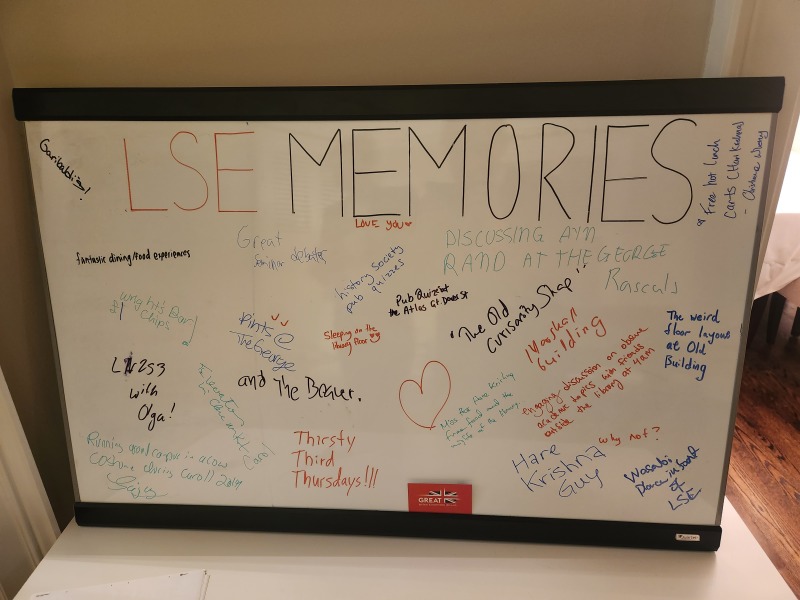 LSE MEMORIES
Garibaldis!
Free hot lunch
carts (Hari Krishna)
LOVE YOU
fantastic dining/food experiences
Great
Seminar debates
history society
pub quizzes
DISCUSSING AYN
RAND AT THE GEORGE
Rascals
Pub Quizes at
the Atlas Gt. Dover St
Wright's Bar
Chips
Pints @
The George
Sleeping on the
library floor
"The Old
Curiosity Shop"
Marshall
building
The weird
floor layouts
at Old
Building
LN253
with
Olga!
and The Beaver.
Miss the Hare Krishna
Free food and the
of the library
engaging discussion on obscure
academic topics with friends
outside the library at 4am
why not?
Running around campus in a cow
costume during Caroll 2017
Carol
Thirsty
Third
Thursdays!!!
Hare
Krishna
Guy
Wasabi
Place in front
of
LSE
GREAT